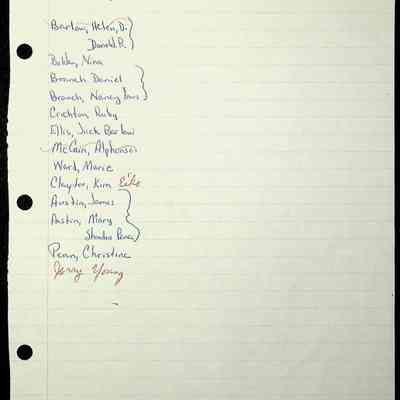 Barlow, Helen, D.
Donald R.
Bobby, Nina
Branch Daniel
Branch, Nancy
Crichton, Ruby
Ellis, Jack Barlow
McCain, Alphonso
Ward, Marie
Clayder, Kim Eiko
Austin, James
Austin, Mary
Shandra
Penn, Christine
Jerry Young